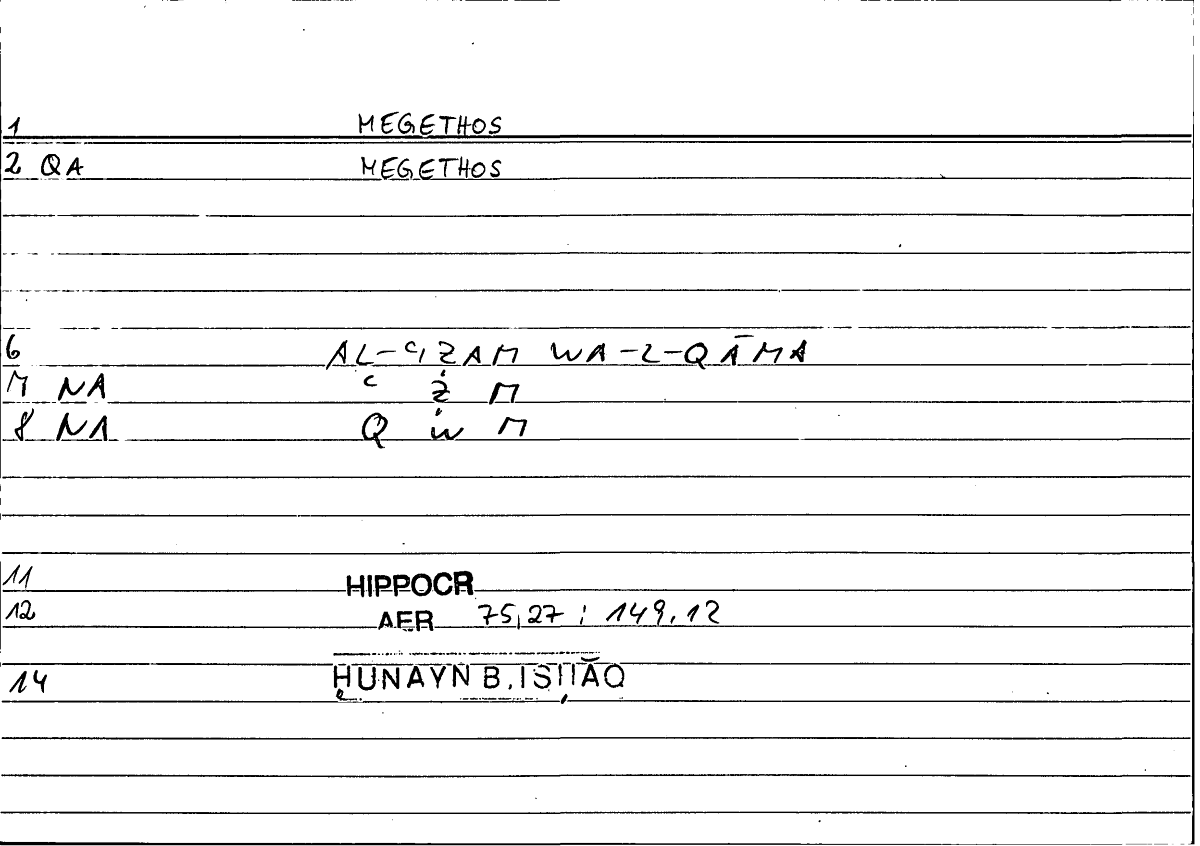 1 MEGETHOS
2 QA MEGETHOS
6 AL-ʿIẒAM WA-L-QĀMA
7 NA ʿ Ẓ M
8 NA Q W M
11 HIPPOCR
12 AER 75,27 ; 149,12
14 ḤUNAYN B. ISḤĀQ